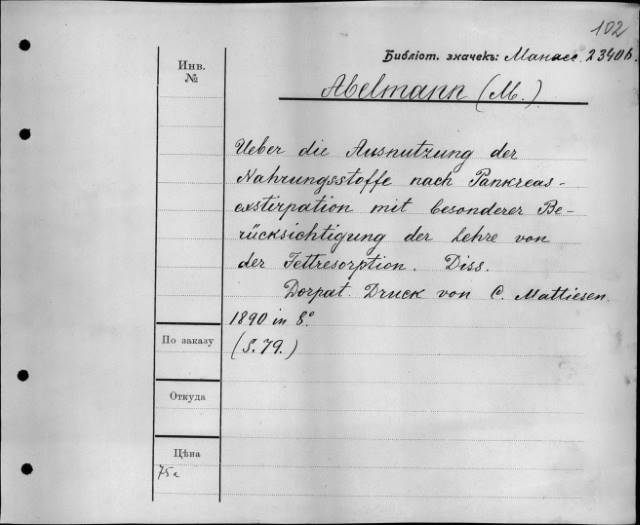 102
Библіот. значекъ: Манасс. 23406.
Инв.
№
Abelmann (M.)
Ueber die Ausnutzung der
Nahrungsstoffe nach Pankreas-
exstirpation mit besonderer Be-
rücksichtigung der Lehre von
der Fettresorption. Diss.
Dorpat. Druck von C. Mattiesen.
1890 in 8°
(S. 79.)
По заказу
Откуда
Цѣна
75к